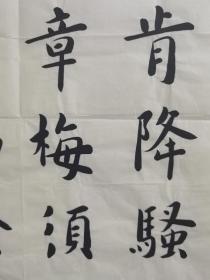 肯降騷
章梅須